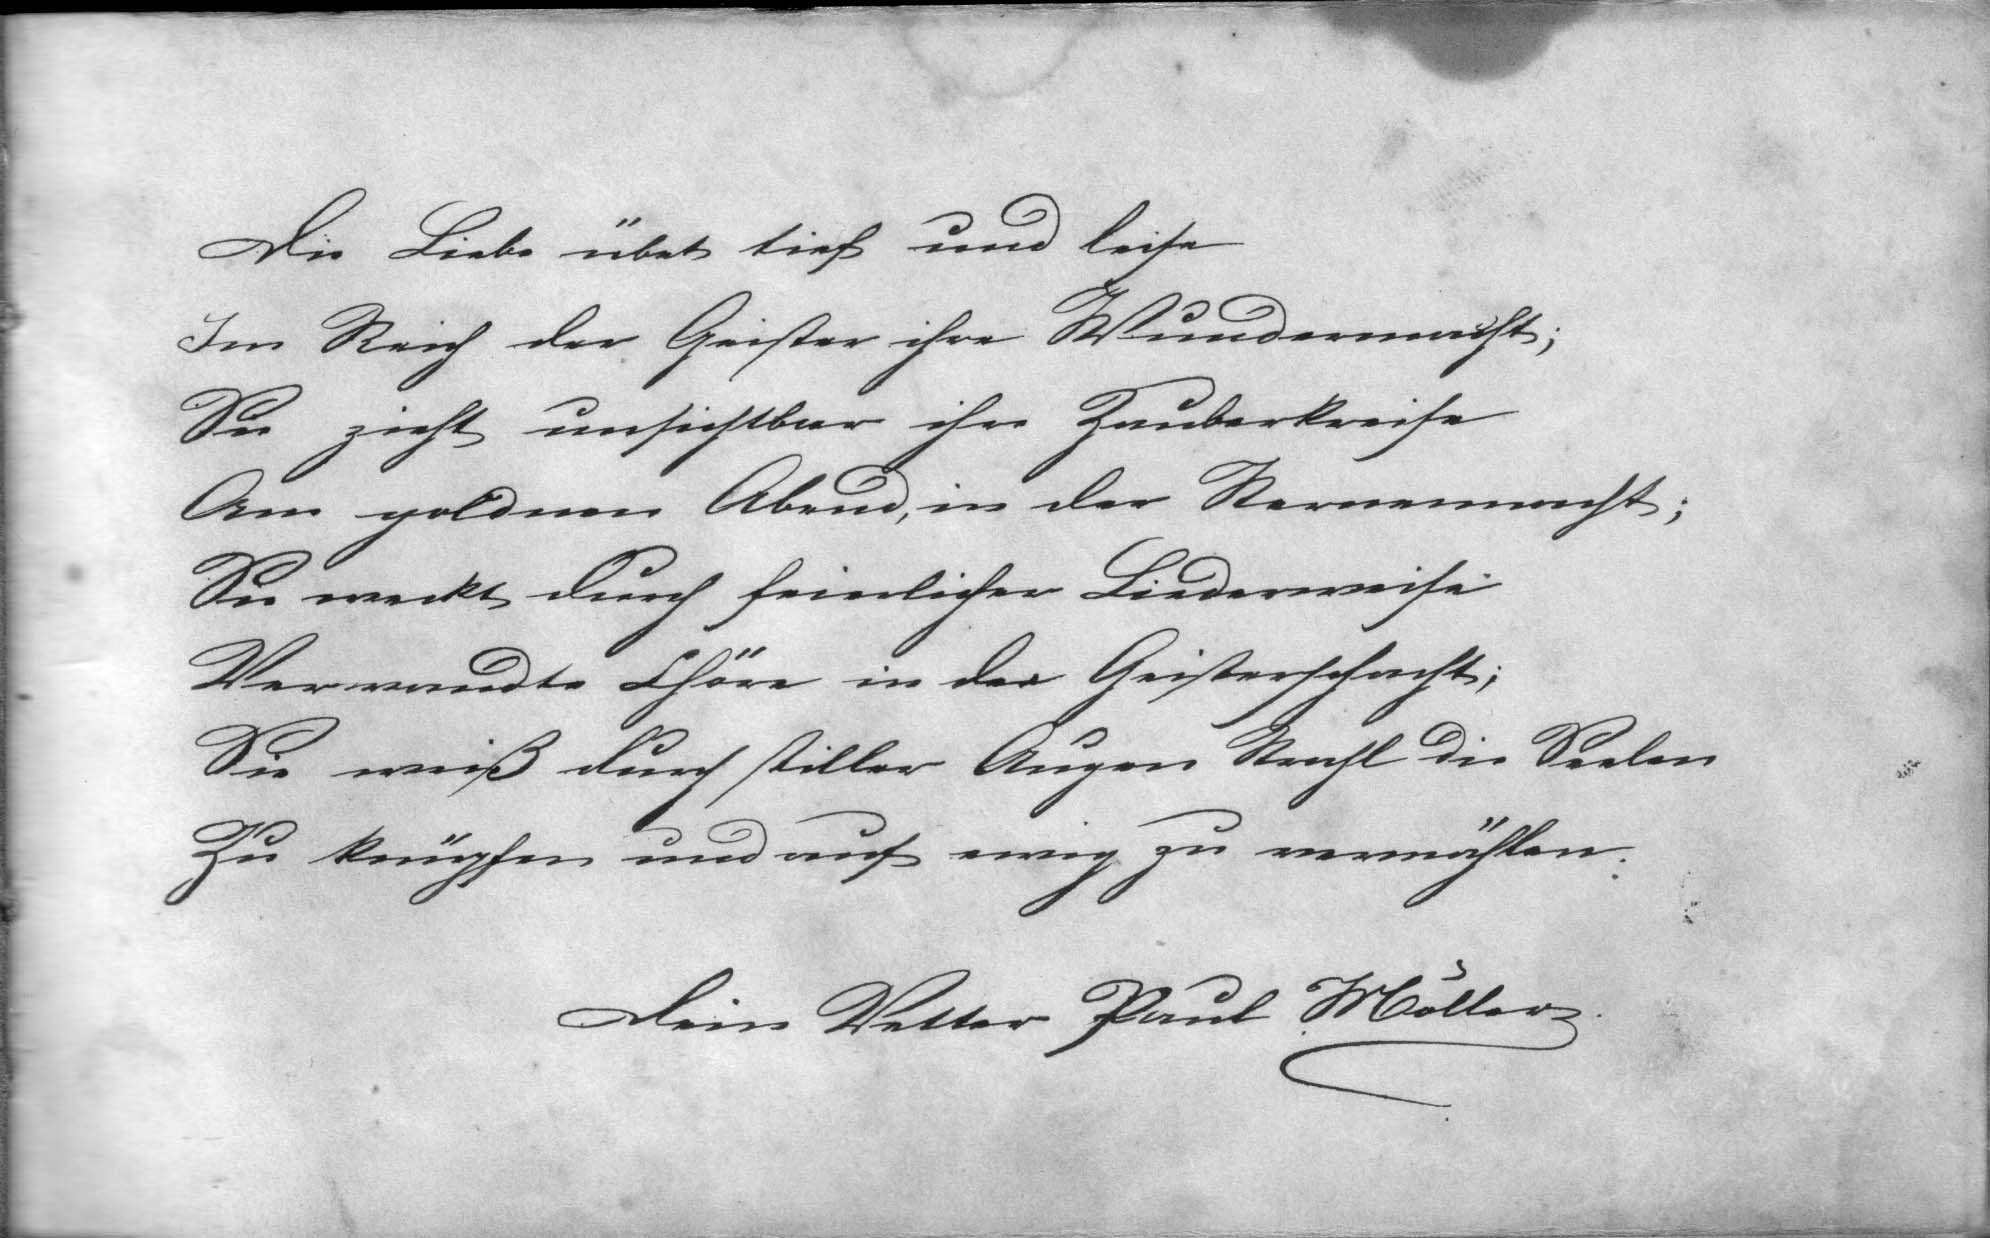 Die Liebe übet tief und leise
Im Reich der Geister ihre Wundermacht;
Sie zieht unsichtbar ihre Zauberkreise
Am goldnen Abend, in der Sternennacht;
Sie weckt durch feierlicher Liederweise
Verwandte Chöre in der Geisterschacht;
Sie weiß durch stiller Augen Strahl die Seelen
Zu knüpfen und auf ewig zu vermählen.
Dein Vetter Paul Möller